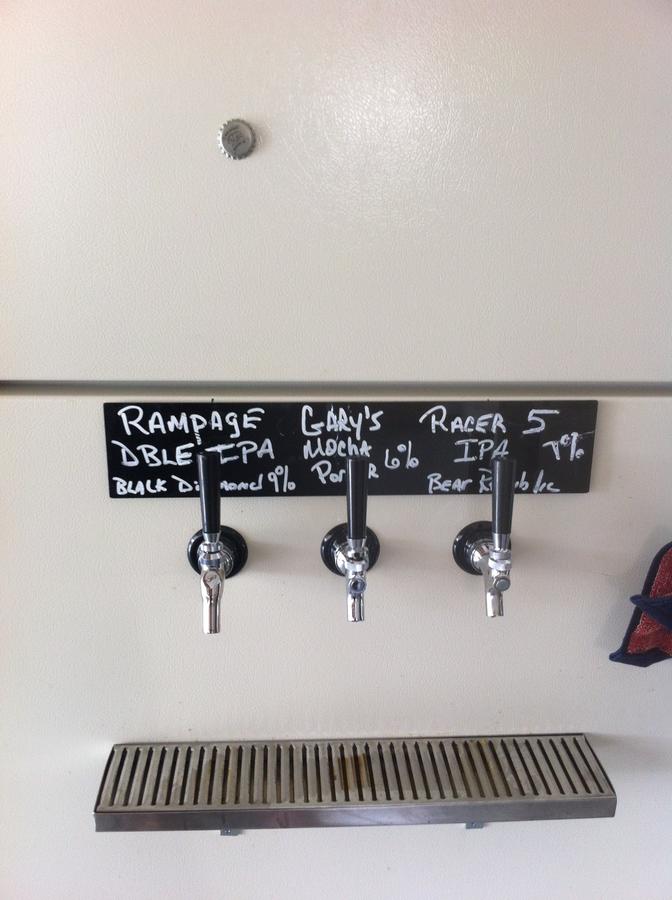 RAMPAGE
DBLE IPA
BLACK Diamond 9%
GARY'S
MOCHA
PORTER 6%
RACER 5
IPA 7%
BEAR Republic